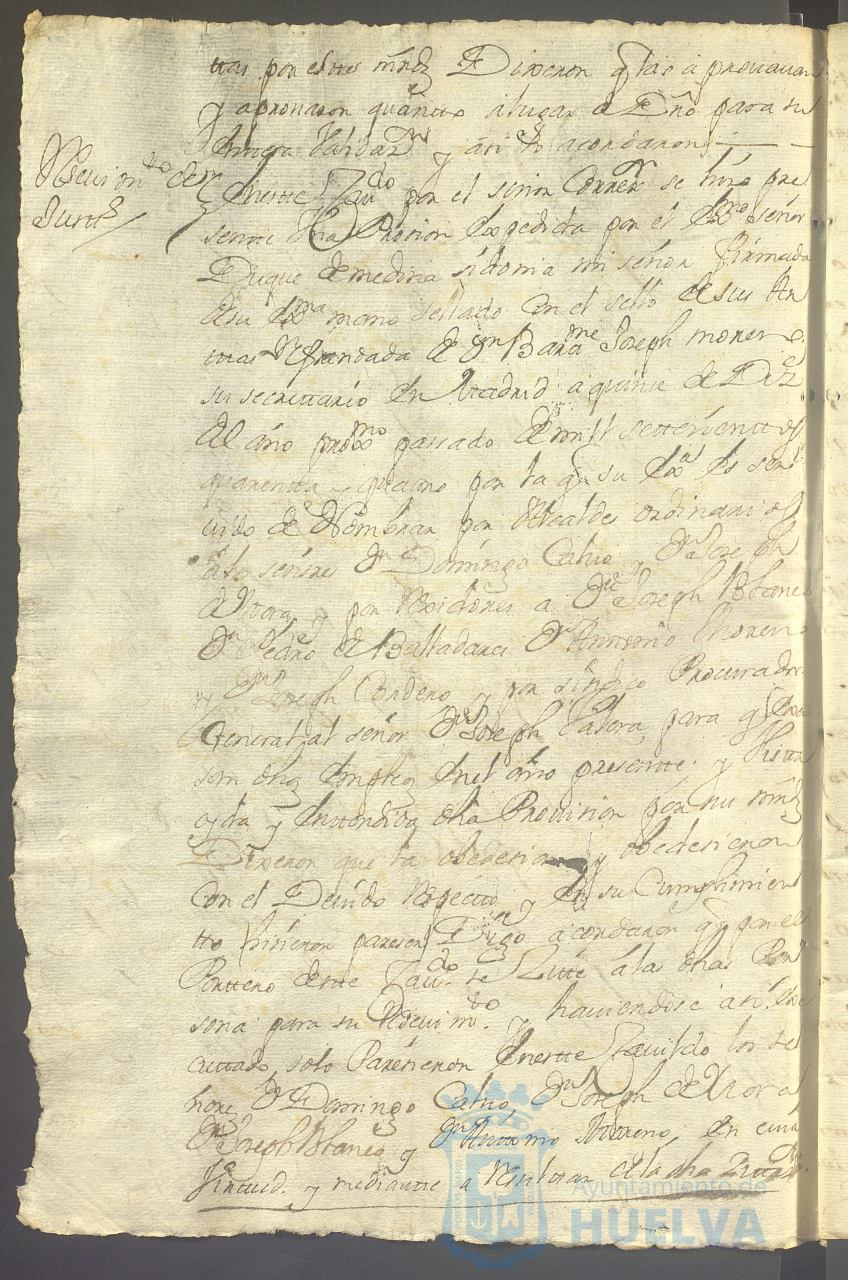 ttas por estte mrd Dixeron q las aprovavan
y aprovaron quantto a lugar en Dro para su
entera Validaz.on y assi lo acordaron
Recevim.to de
Justt.a
En estte Cav.do por el señor Corre.r se hizo pre
sentte Una Provision expedida por el Ex.mo señor
Duque de medina sidonia mi señor firmada
de su Ex.ma mano sellado con el sello de sus Ar
mas Refrendada de Dn Barme Joseph moner
su secrettario en Madrid a quinze de Diz.e
del año proxmo passado de mill settezienttos
quarentta y quatro por la q su Ex.a es ser
vido de Nombrar por Alcaldes ordinarios
a los señores Dn Domingo Calvo y Dn Joseph
de Mora y por Rexidores a Dn Joseph Blanco
Dn Pedro de Balladares Dn Anttonio Moreno
y Dn Joseph Cordero y por sindico Procurador
General al señor Dn Joseph para q
sean dhos empleos en el año presentte y Vista
oyda y enttendida dha Provision por su mrd
Dixeron que la obedesian y obedesieron
Con el Devido Respecto y en su Cumplimien
tto hisieron paresen Digo acordaron q por el
Porttero de este Cav.do se Zitte a las dhas Per
sonas para su Resevim.to y haviendose assi exe
cuttado solo Paresieron en estte Cavildo los se
ñores Dn Domingo Calvo, Dn Joseph de Mora
Dn Joseph Blanco y Dn Anttonio Moreno, en cuia
Virtud y mediantte a de la dha
Ayuntamiento de
HUELVA